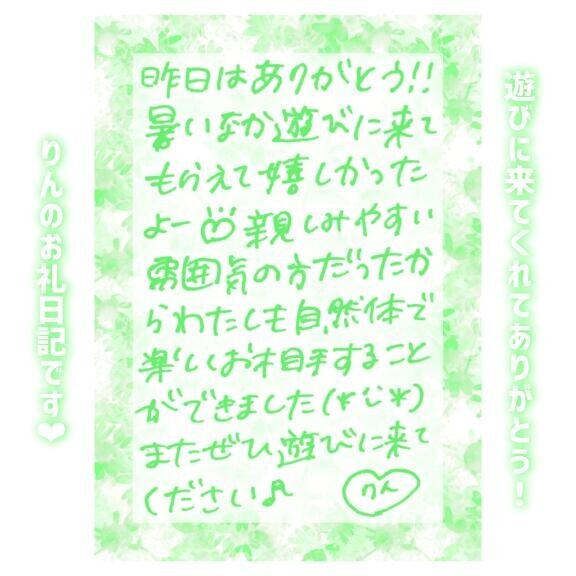 遊びに来てくれてありがとう！
昨日はありがとう!!
暑いなか遊びに来て
もらえて嬉しかった
よー 親しみやすい
雰囲気の方だったか
らわたしも自然体で
楽しくお相手すること
ができました(*¨*)
またぜひ遊びに来て
ください♪
りん
りんのお礼日記です❤